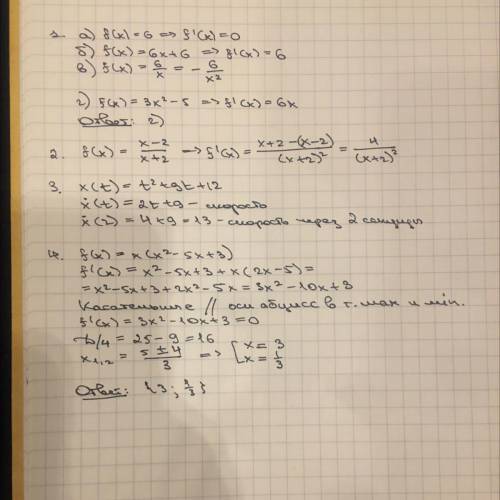 1. а) f(x) = 6 => f'(x) = 0
б) f(x) = 6x+6 => f'(x) = 6
в) f(x) = 6/x = - 6/x²
г) f(x) = 3x² - 5 => f'(x) = 6x
Ответ: г)
2. f(x) = (x-2)/(x+2) => f'(x) = (x+2-(x-2))/(x+2)² = 4/(x+2)²
3. x(t) = t² + 9t + 12
ẋ(t) = 2t + 9 - скорость
ẋ(2) = 4+9 = 13 - скорость через 2 секунды
4. f(x) = x(x² - 5x + 3)
f'(x) = x² - 5x + 3 + x(2x - 5) =
= x² - 5x + 3 + 2x² - 5x = 3x² - 10x + 3
Касательные // оси абцисс в т. max и min.
f'(x) = 3x² - 10x + 3 = 0
D/4 = 25 - 9 = 16
x₁,₂ = (5 ± 4)/3 => [ x = 3
x = 1/3
Ответ: {3; 1/3}